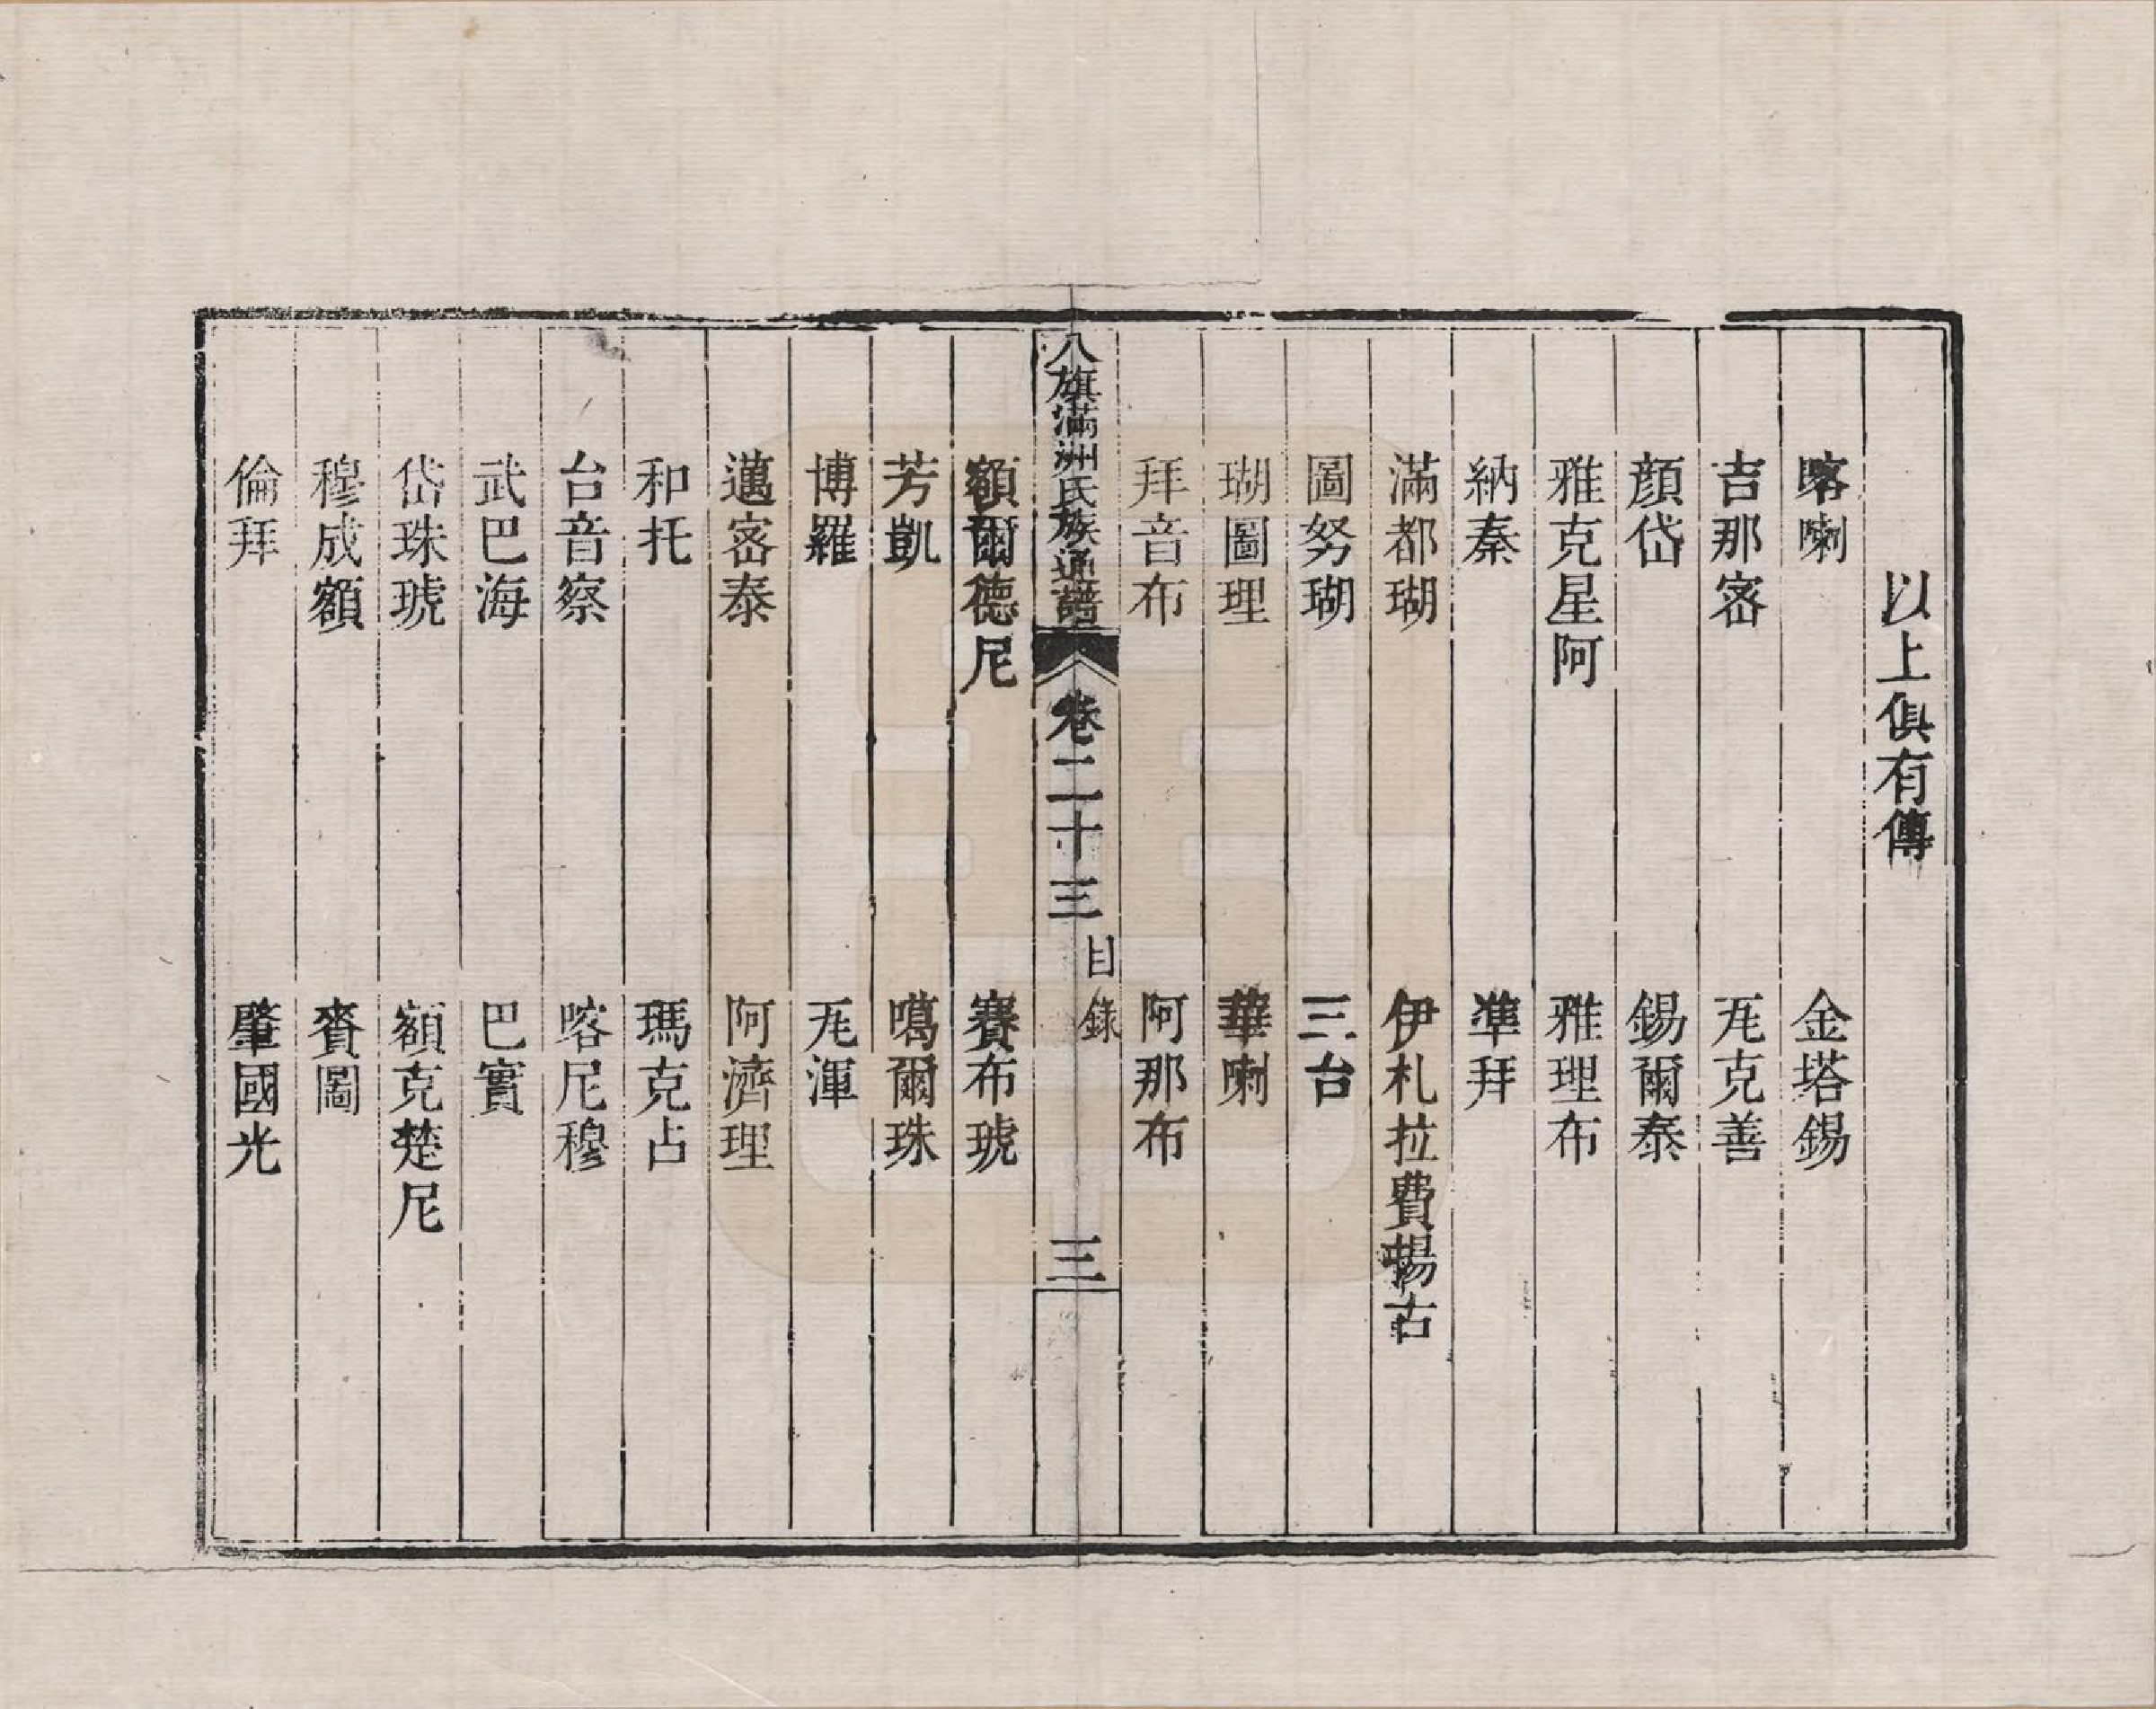 以上俱有傳
喀喇　金塔錫
吉那密　兀克善
顏岱　錫爾泰
雅克星阿　雅理布
納秦　準拜
滿都瑚　伊札拉費揚古
圖努瑚　三台
瑚圖理　華喇
拜音布　阿那布
八旗滿洲氏族通譜　卷二十三　目錄　三
額爾德尼　賽布琥
芳凱　噶爾珠
博羅　兀渾
邁密泰　阿濟理
和托　瑪克占
台音察　喀尼穆
武巴海　巴實
岱珠琥　額克楚尼
穆成額　賚圖
倫拜　肇國光